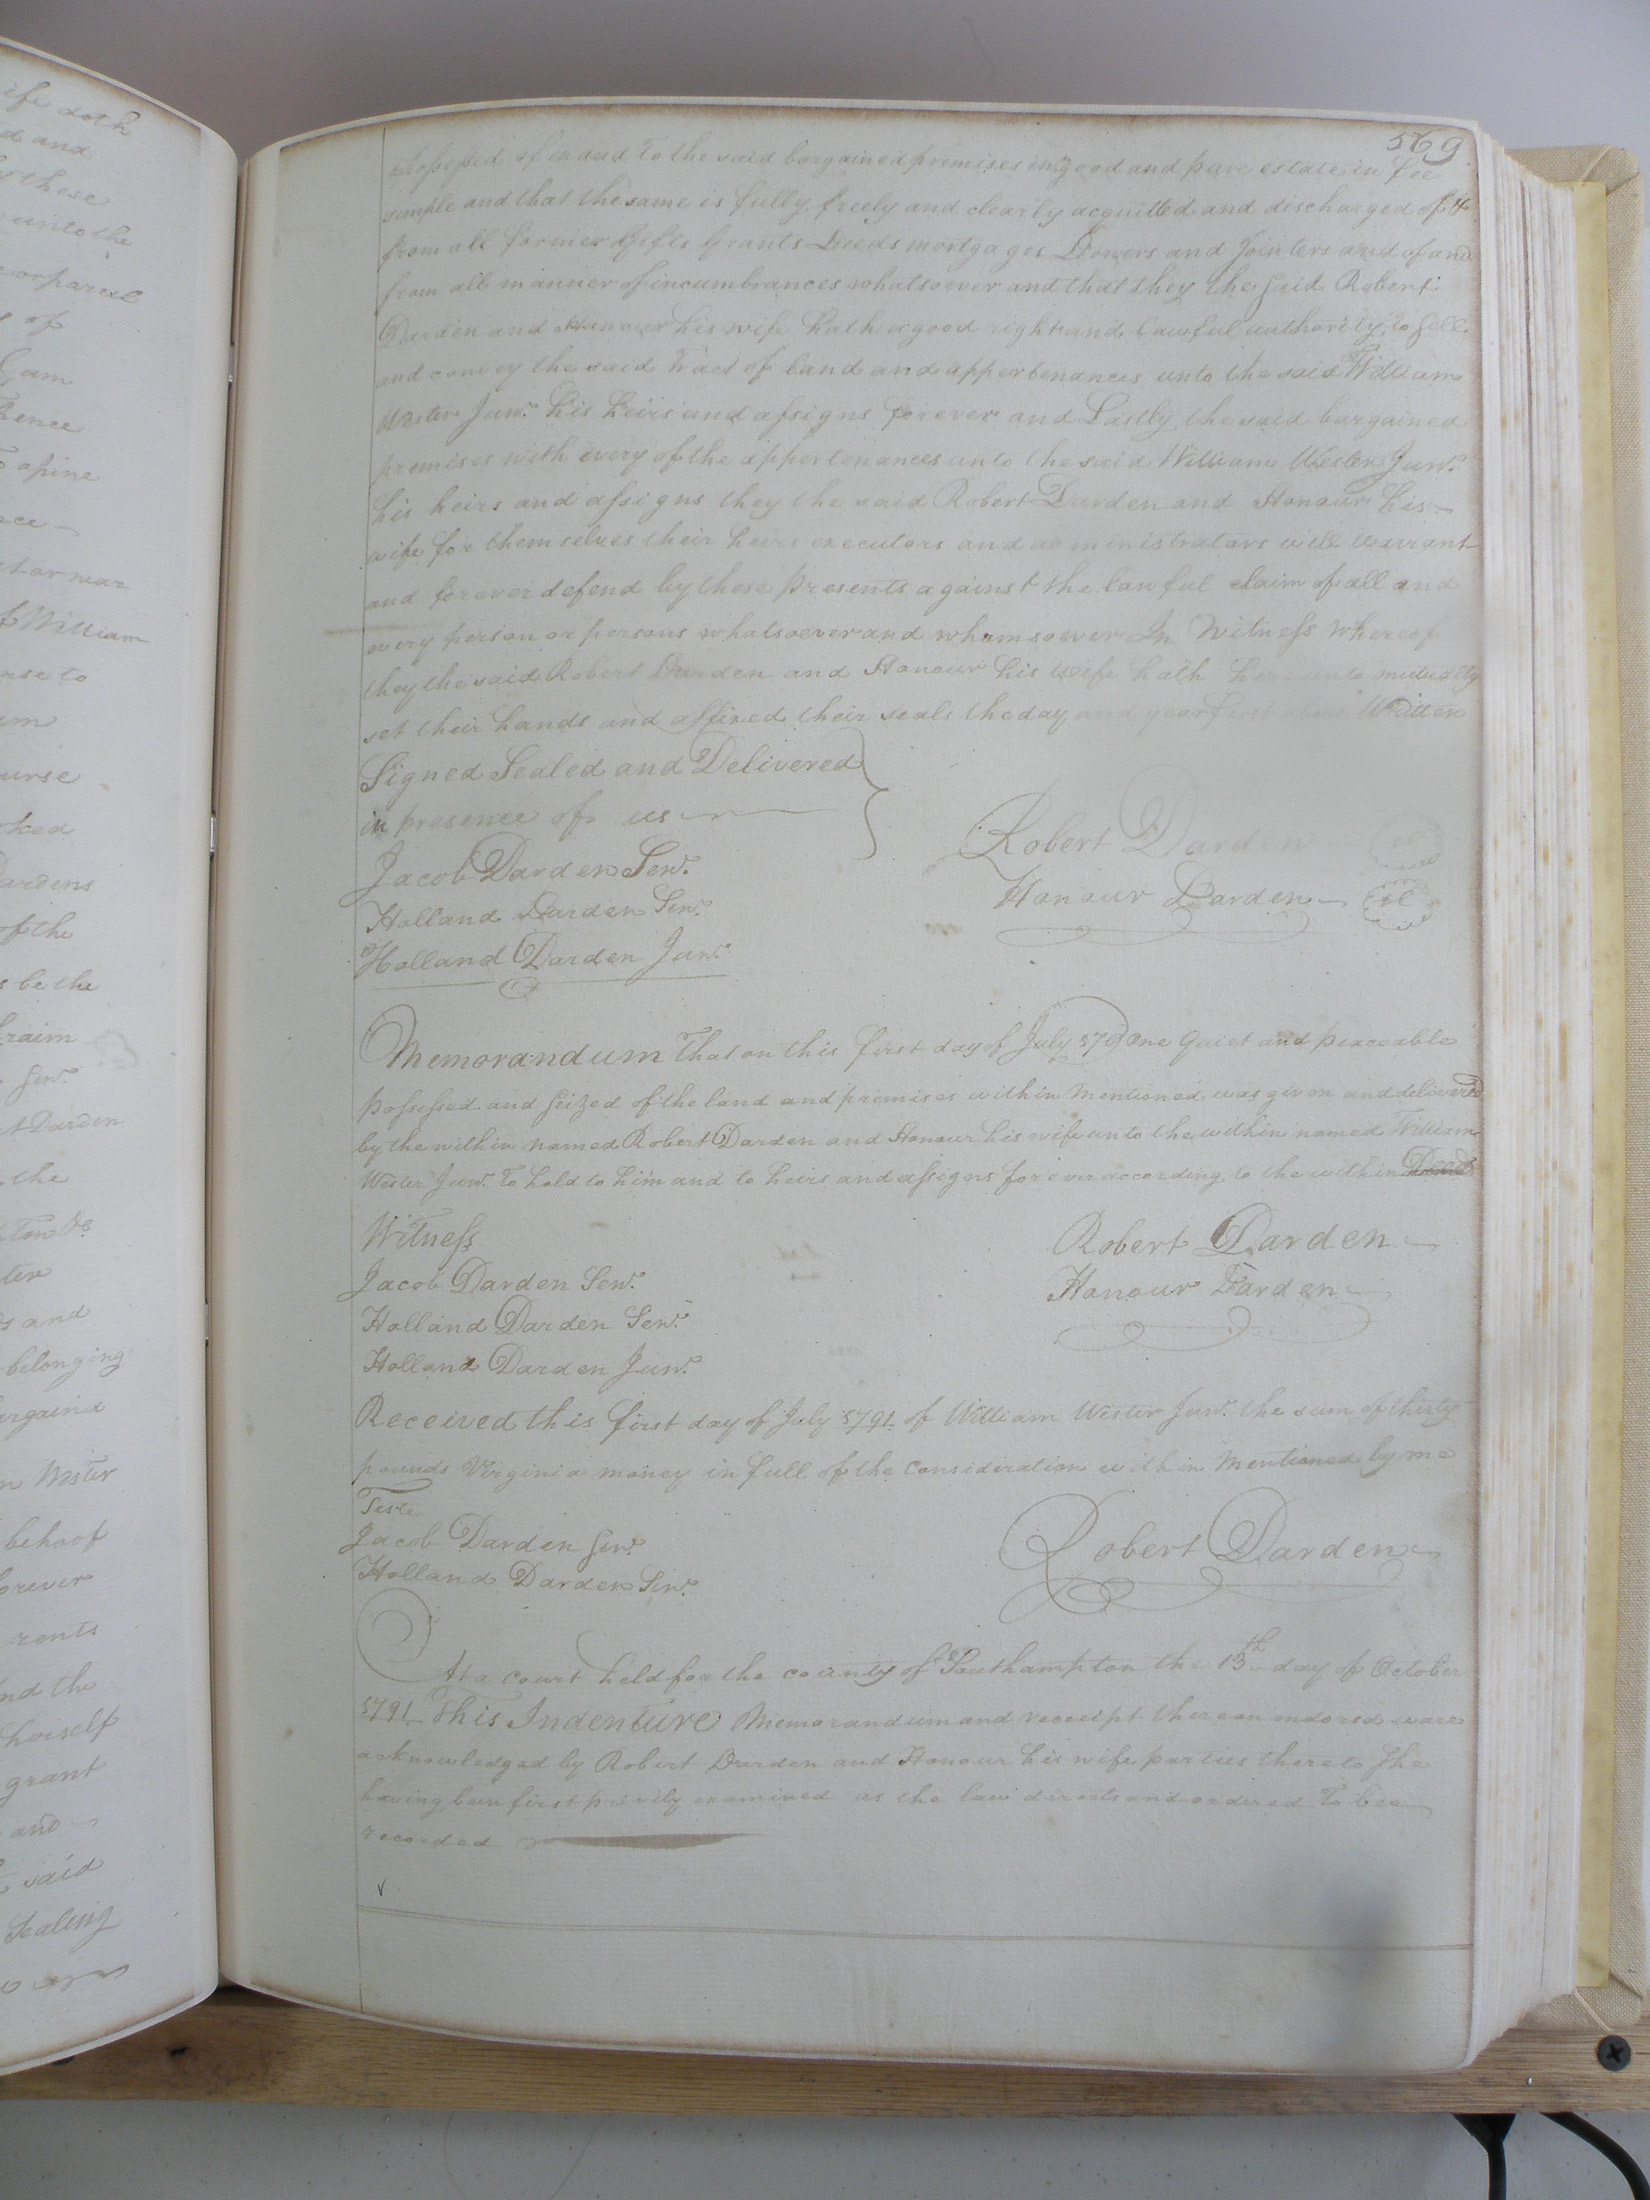 ife doth
d and
these
unto the
or parcel
s of
Gum
Thence
To a pine
nce
at or near
of William
rse to
am
urse
rked
Dardens
of the
s be the
hraim
Senr.
t Darden
the
ton &c
ter
s and
belonging
argaind
m Wester
behoof
forever
rents
nd the
hirself
grant
and
said
Sealing
569
possessed of in and to the said bargained premises in good and pure estate in Fee
simple and that the same is fully freely and clearly acquitted and discharged of &
from all former Gifts Grants Deeds mortgages Dowers and Jointers and of and
from all manner of incumbrances whatsoever and that they the said Robert
Darden and Honour his wife hath a good right and lawful authority to sell
and convey the said tract of land and appertenances unto the said William
Wester Junr. his heirs and assigns forever and Lastly the said bargained
premises with every of the appertenances unto the said William Wester Junr.
his heirs and assigns they the said Robert Darden and Honour his
wife for themselves their heirs executors and administrators will warrant
and forever defend by these presents against the lawful claim of all and
every person or persons whatsoever and whomsoever In Witness whereof
they the said Robert Darden and Honour his wife hath hereunto mutually
set their hands and affixed their seals the day and year first above Written
Signed Sealed and Delivered
in presence of us
Jacob Darden Senr.
Robert Darden
Holland Darden Senr.
Honour Darden
Holland Darden Junr.
Memorandum That on this first day of July 1791 One Quiet and peaceable
possessed and seized of the land and premises within mentioned was given and delivered
by the within named Robert Darden and Honour his wife unto the within named William
Wester Junr. To hold to him and to heirs and assigns forever according to the within
Witness
Robert Darden
Jacob Darden Senr.
Honour Darden
Holland Darden Senr.
Holland Darden Junr.
Received this first day of July 1791. of William Wester Junr. the sum of thirty
pounds Virginia money in full of the Consideration within Mentioned by me
Teste
Jacob Darden Senr.
Robert Darden
Holland Darden Senr.
At a court held for the county of Southampton the 13th day of October
1791. This Indenture Memorandum and receeipt thereon endorsd ware
acknowledged by Robert Darden and Honour his wife parties thereto She
having been first privily examined as the law directs and ordered To bee
recorded